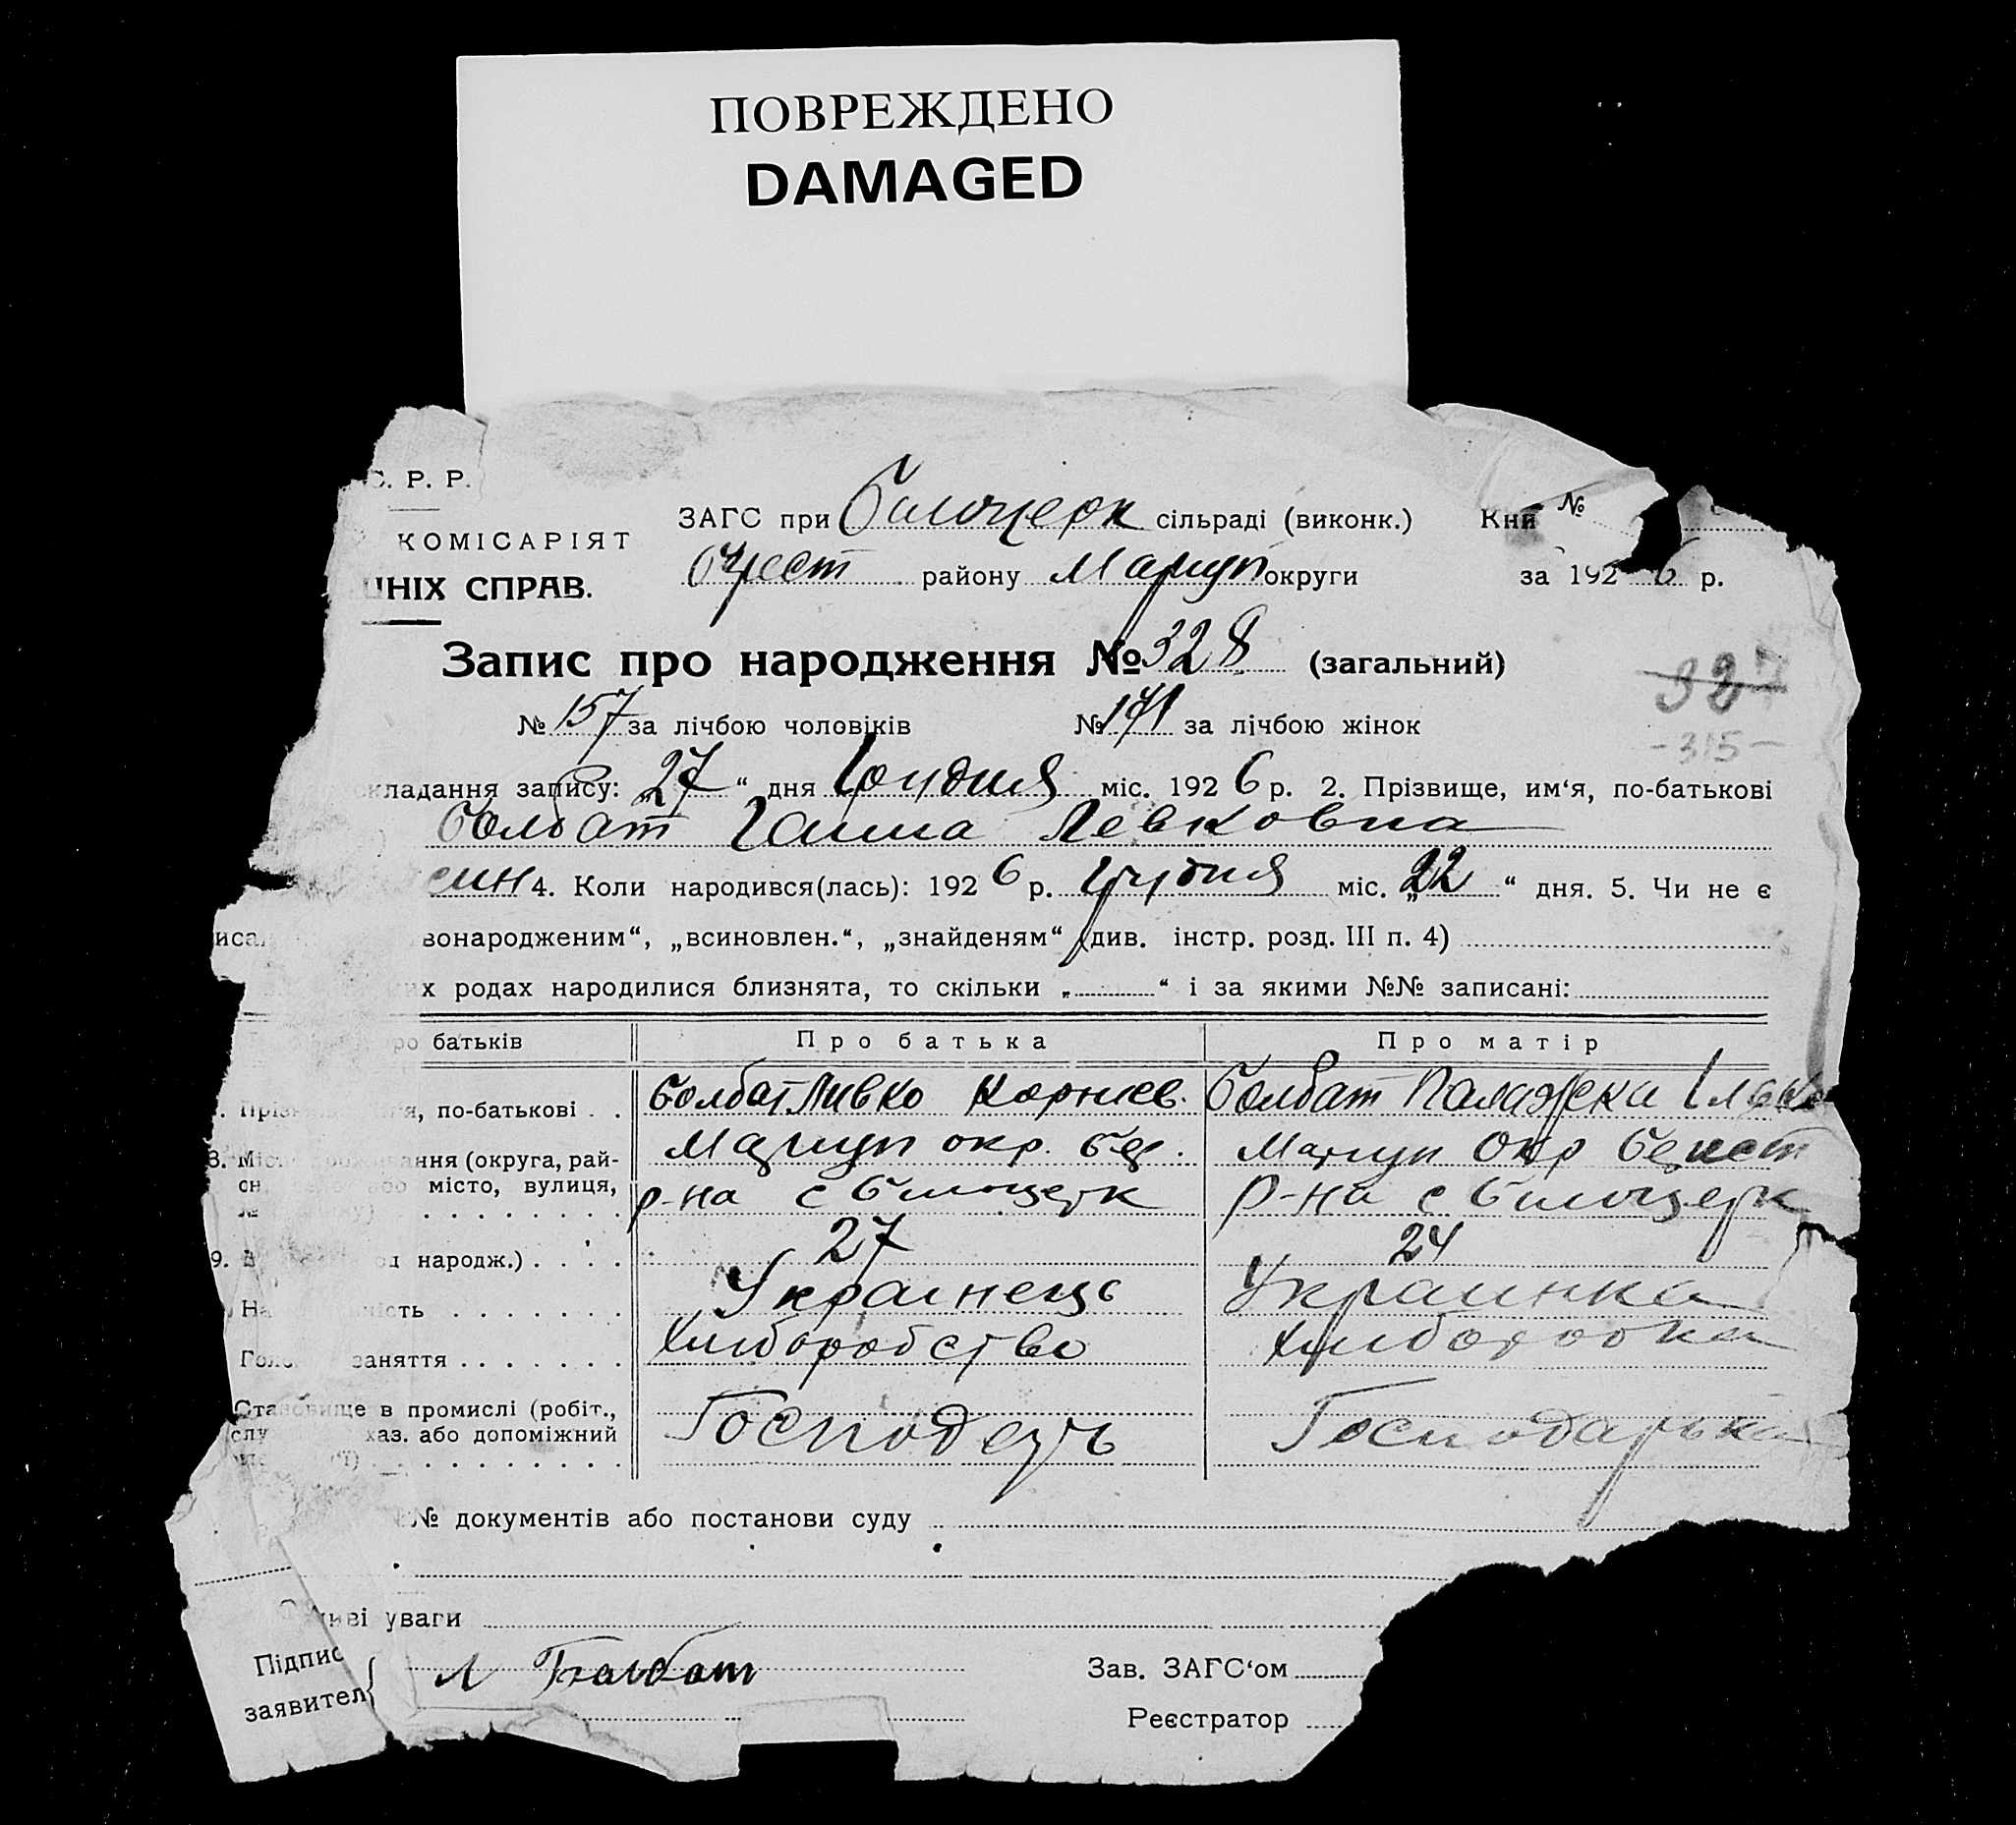 ПОВРЕЖДЕНО
DAMAGED
С. Р. Р.
КОМІСАРІЯТ
ШНІХ СПРАВ.
ЗАГС при Билоцерк сільраді (виконк.) Кни №
району Мариуп округи за 192 6 р.
Запис про народження № 328 (загальний)
№ 157 за лічбою чоловіків № 171 за лічбою жінок
327
-315-
кладання запису: „27“ дня Грудня міс. 192 6 р. 2. Прізвище, им‘я, по-батькові
Болбат Ганна Левковна
4. Коли народився(лась): 192 6 р. Грудня міс. „22“ дня. 5. Чи не є
вонароджeним“, „всиновлен.“, „знайденям“ (див. інстр. розд. III п. 4)
их родах народилися близнята, то скільки „ “ і за якими №№ записані:
ро батьків Про батька Про матір
Прізв я, по-батькові . . Болбат Ливко Корниев. Болбат Палажка
8. Місце проживання (округа, рай- Мариуп окр. Мариуп Окр
он, або місто, вулиця, р-на с Билоцерк р-на с Билоцерк
№
9. народж.) . . . . 27 24
На ність . . . . . . . Украинець Украинка
Голо заняття . . . . . . . Хлиборобство Хлиборобка
Становище в промислі (робіт.,
слу хаз. або допоміжний Господарь Господарька
№ документів або постанови суду
иві уваги
Підпис
заявител { Л Болбат
Зав. ЗАГС‘ом
Реєстратор